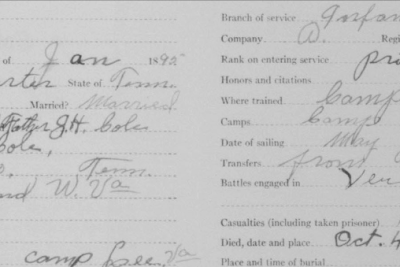 of Jan 1895
State of Tenn
Married? Married
Father J.H. Cole
Tenn.
W. Va
Camp Lee, Va
Branch of service Infan
Company A. Regi
Rank on entering service pri
Honors and citations
Where trained Camp
Camps Camp
Date of sailing May
Transfers from
Battles engaged in Ver
Casualties (including taken prisoner)
Died, date and place Oct. 4
Place and time of burial